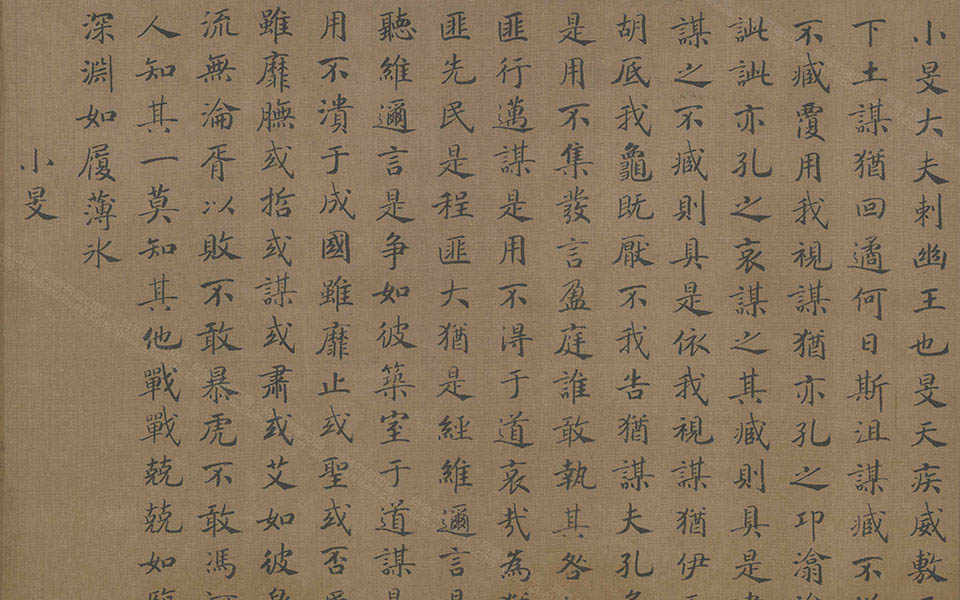 小旻大夫刺幽王也旻天疾威敷
下土謀猶回遹何日斯沮謀臧不
不臧覆用我視謀猶亦孔之邛潝
訿訿亦孔之哀謀之其臧則具是
謀之不臧則具是依我視謀猶伊
胡厎我龜既厭不我告猶謀夫孔
是用不集發言盈庭誰敢執其咎
匪行邁謀是用不得于道哀哉為
匪先民是程匪大猶是經維邇言
聽維邇言是争如彼築室于道謀
用不潰于成國雖靡止或聖或否
雖靡膴或哲或謀或肅或艾如彼
流無淪胥以敗不敢暴虎不敢馮
人知其一莫知其他戰戰兢兢如
深淵如履薄氷
小旻